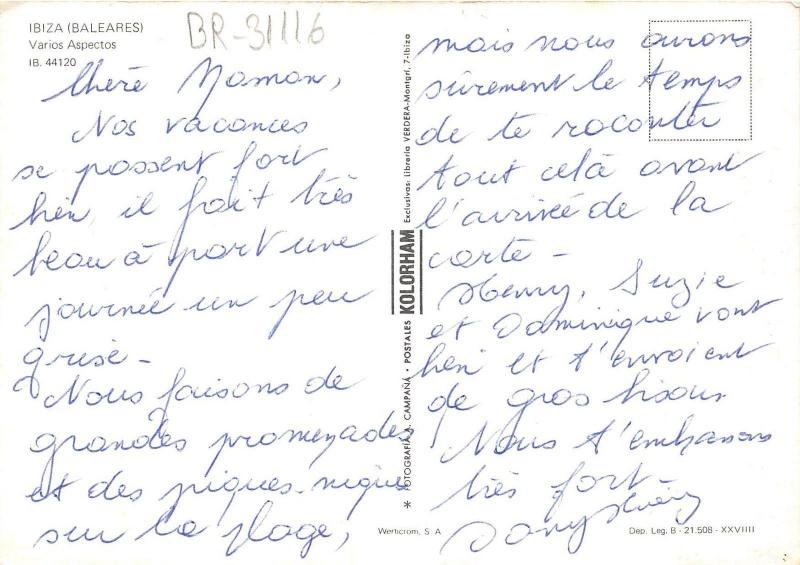 IBIZA (BALEARES)
Varios Aspectos
IB. 44120
BR-31116
Chère Maman,
Nos vacances
se passent fort
bien, il fait très
beau à part une
journée un peu
grise -
Nous faisons de
grandes promenades
et des piques-niques
sur la plage,
* FOTOGRAFIA A. CAMPAÑÁ • POSTALES KOLORHAM Exclusivas: Librería VERDERA-Montgrí, 7-Ibiza
mais nous aurons
sûrement le temps
de te raconter
tout celà avant
l'arrivée de la
carte -
Henry, Suzie
et Dominique vont
bien et t'envoient
de gros bisous
Nous t'embrassons
très fort -
Werticrom, S. A
Dep. Leg. B - 21.508 - XXVIIII